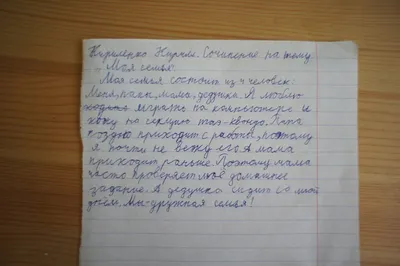 Кириленко Кирилл. Сочинение на тему
Моя семья.
Моя семья состоит из 4 человек:
Меня, папы, мамы, дедушки. Я люблю
играть на компьютере и
хожу на секцию таэ-квондо. Папа
поздно приходит с работы, поэтому
я почти не вижу его. А мама
приходит раньше. Поэтому мама
часто проверяет моё домашнее
задание. А дедушка сидит со мной
днём. Мы-дружная семья!